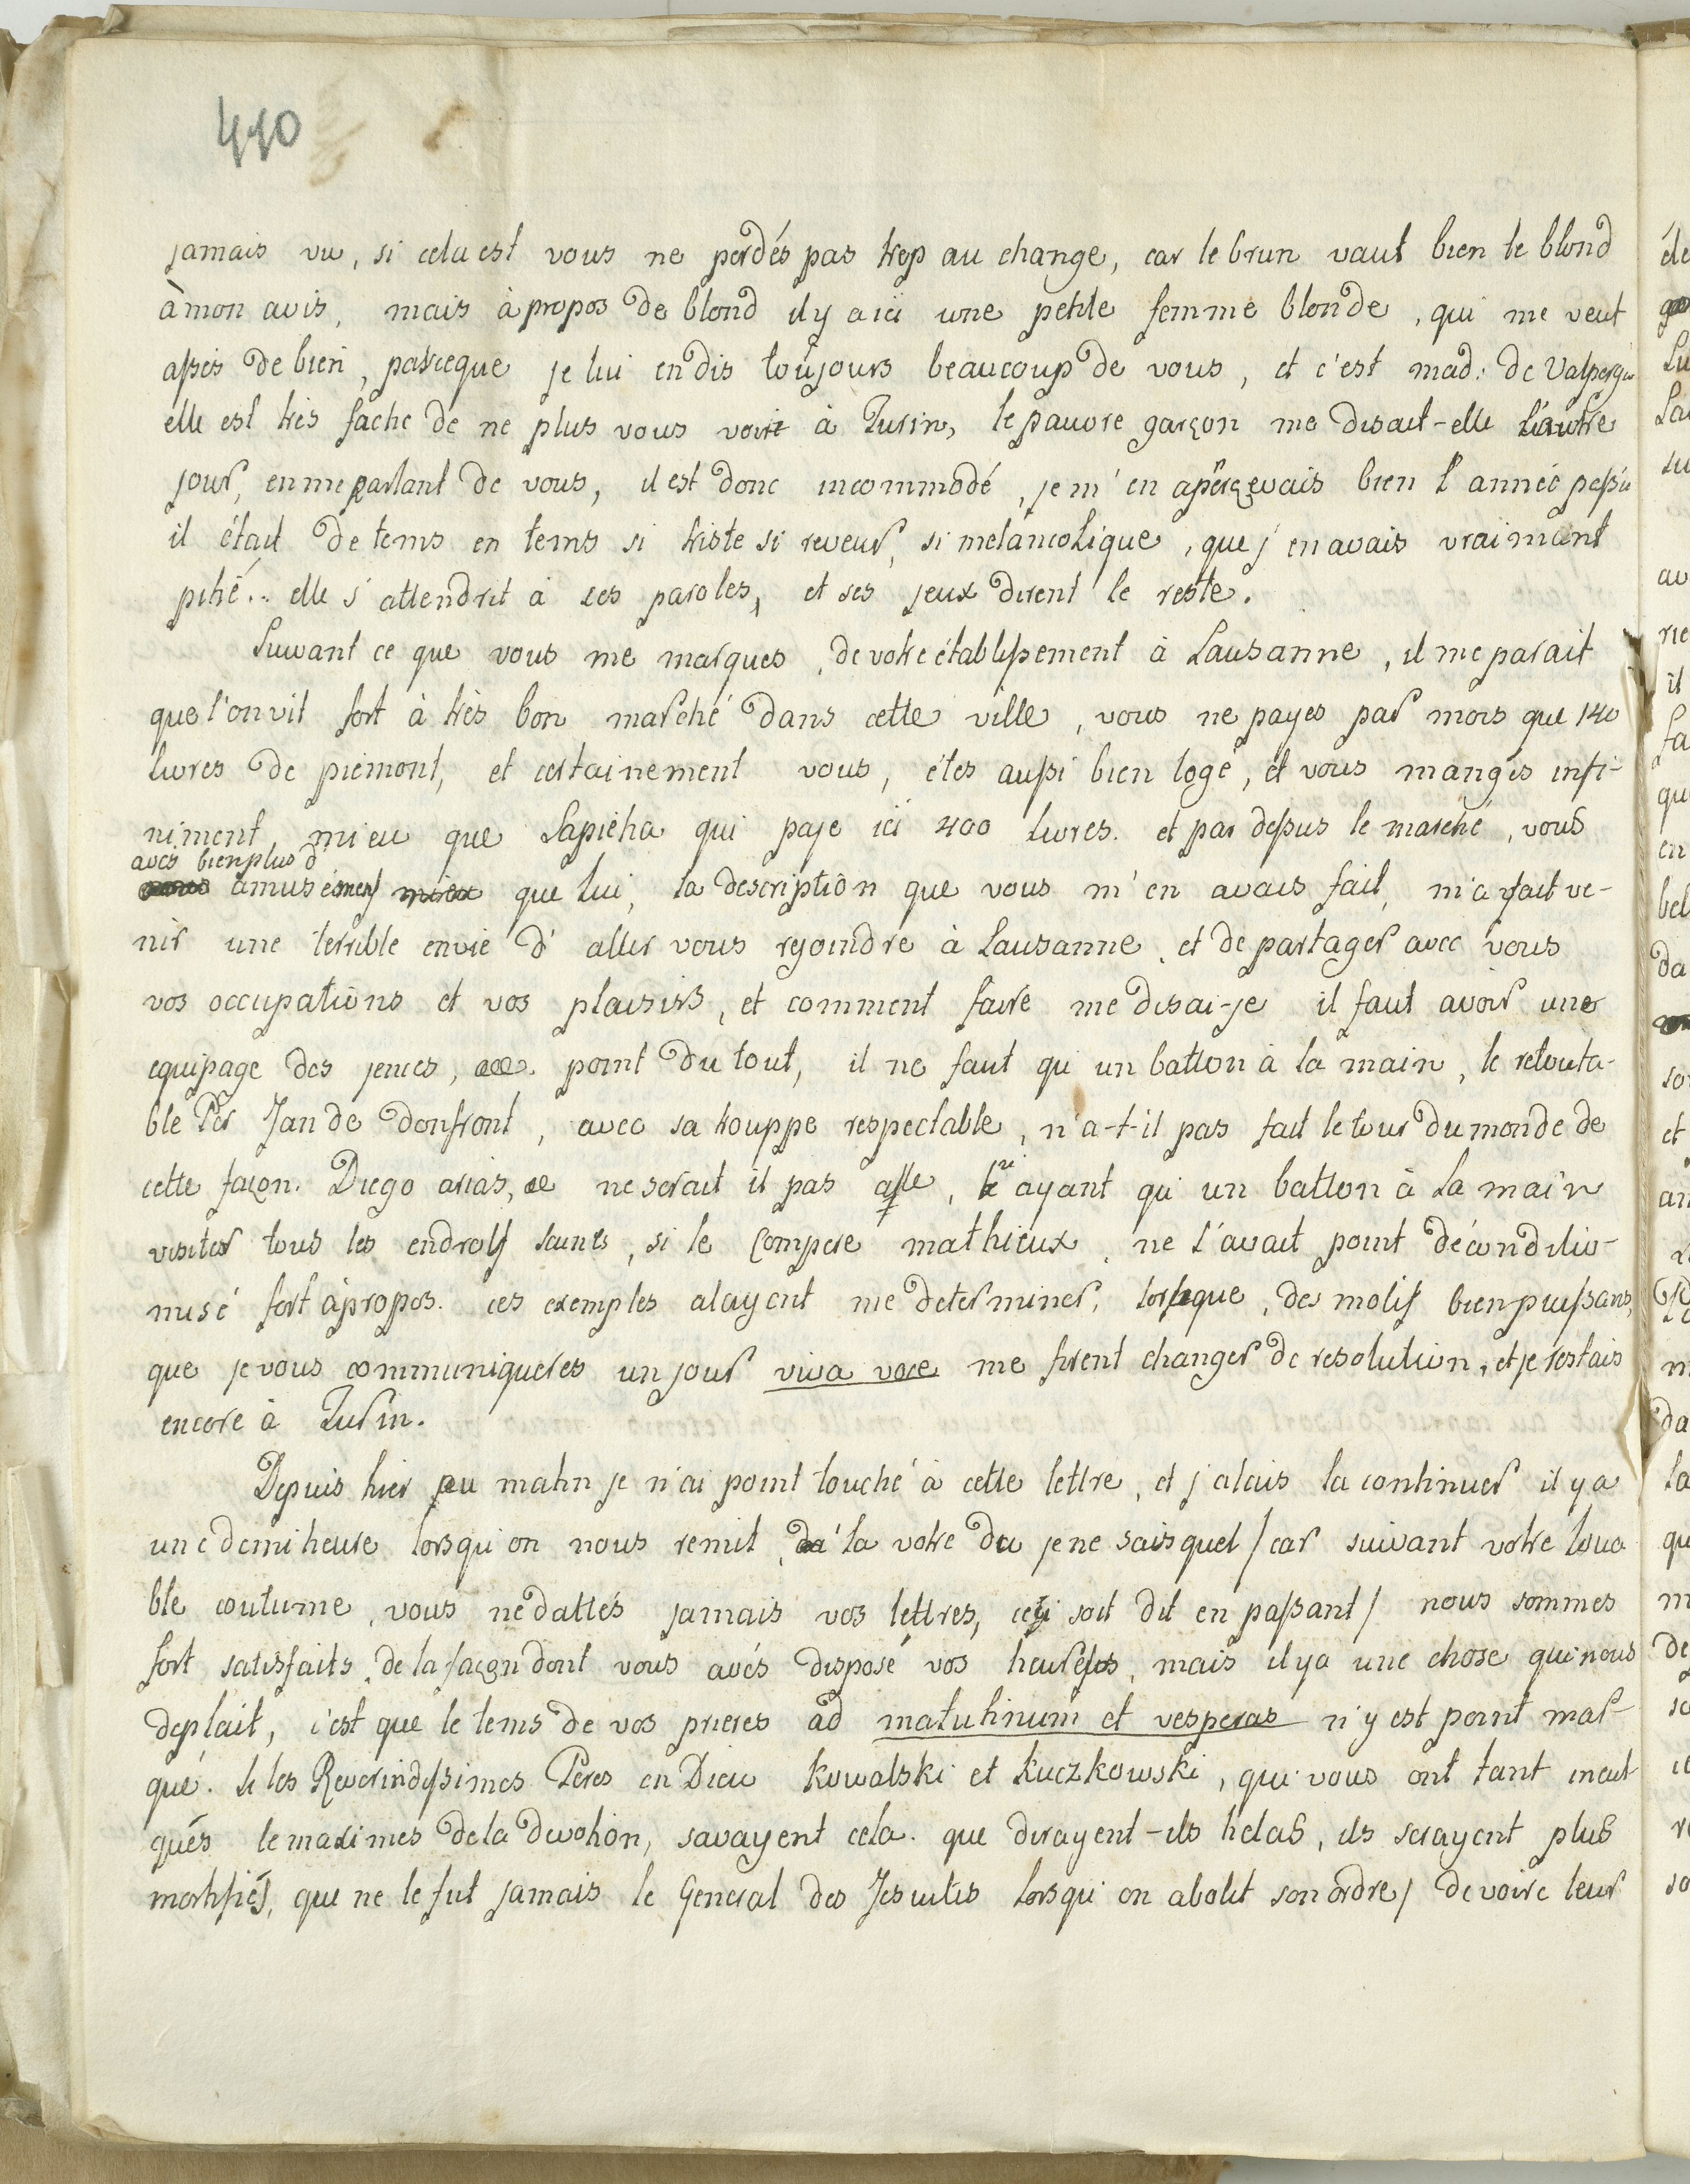 410
jamais vu, si cela est vous ne perdés pas trop au change, car le brun vaut bien le blond
à mon avis, mais à propos de blond il y a ici une petite femme blonde, qui me veut
assés de bien, parceque je lui en dis toujours beaucoup de vous, et c'est mad: de Valpergue
elle est très fache de ne plus vous voire à Turin, le pauvre garçon me disait-elle l'autre
jour, en me parlant de vous, il est donc incommodé, je m'en aperçevais bien l'année passée
il était de tems en tems si triste si reveur, si melancolique, que j'en avais vraimant
pitié.. elle s'attendrit à ces paroles, et ses jeux dirent le reste.
Suivant ce que vous me marques, de votre établissement à Lausanne, il me parait
que l'on vit fort à très bon marché dans cette ville, vous ne payes par mois que 140
livres de piemont, et certainement vous, étes aussi bien logé, et vous mangés infi-
niment mieu que Sapieha qui paje ici 400 livres. et par dessus le marché, vous
avés bien plus d'
amusémens mieux que lui, la description que vous m'en avais fait, m'a fait ve-
nir une terrible envie d'aller vous rejoindre à Lausanne, et de partager avec vous
vos occupations et vos plaisirs, et comment faire me disai-je il faut avoir une
equipage des jences, point du tout, il ne faut qu'un batton à la main, le retouta-
ble Per Jan de Donfront, avec sa trouppe respectable, n'a-t-il pas fait le tour du monde de
cette façon. Diego arias, ne serait il pas allé, n'ayant qu'un batton à la main
visiter tous les endrois saints, si le Compere mathieux, ne l'avait point décondilio-
nisé fort àpropos. ces exemples alayent me determiner, lorsque, des motifs bien puissans,
que je vous communiqueres un jour viva voce me firent changer de resolution, et je restais
encore à Turin.
Depuis hier au matin je n'ai point touché à cette lettre, et j'alais la continuer il y a
une demi heure lorsqu'on nous remit, la votre du je ne sais quel / car suivant votre loua
ble coutume, vous ne dattes jamais vos lettres, ceci soit dit en passant / nous sommes
fort satisfaits, de la façon dont vous avés disposé vos heures, mais il y a une chose qui nous
deplait, c'est que le tems de vos prieres ad matutinum et vesperas n'y est point mar-
qué. Si les Reverindissimes Peres en Dieu Kowalski et Kuczkowski, qui vous ont tant incul
qués le maximes de la devotion, savayent cela. que dirayent-ils helas, ils serayent plus
mortifiés, que ne le fut jamais le General des Jesuites lorsqu'on abolit son ordre / de voire leur